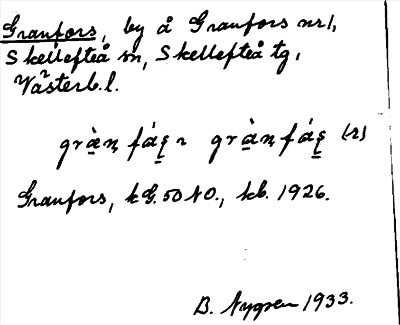 Granfors, by å Granfors nr 1,
Skellefteå sn, Skellefteå tg,
Västerb. l.
Granfors, k G. 50 NO., kb. 1926.
B. Nygren 1933.